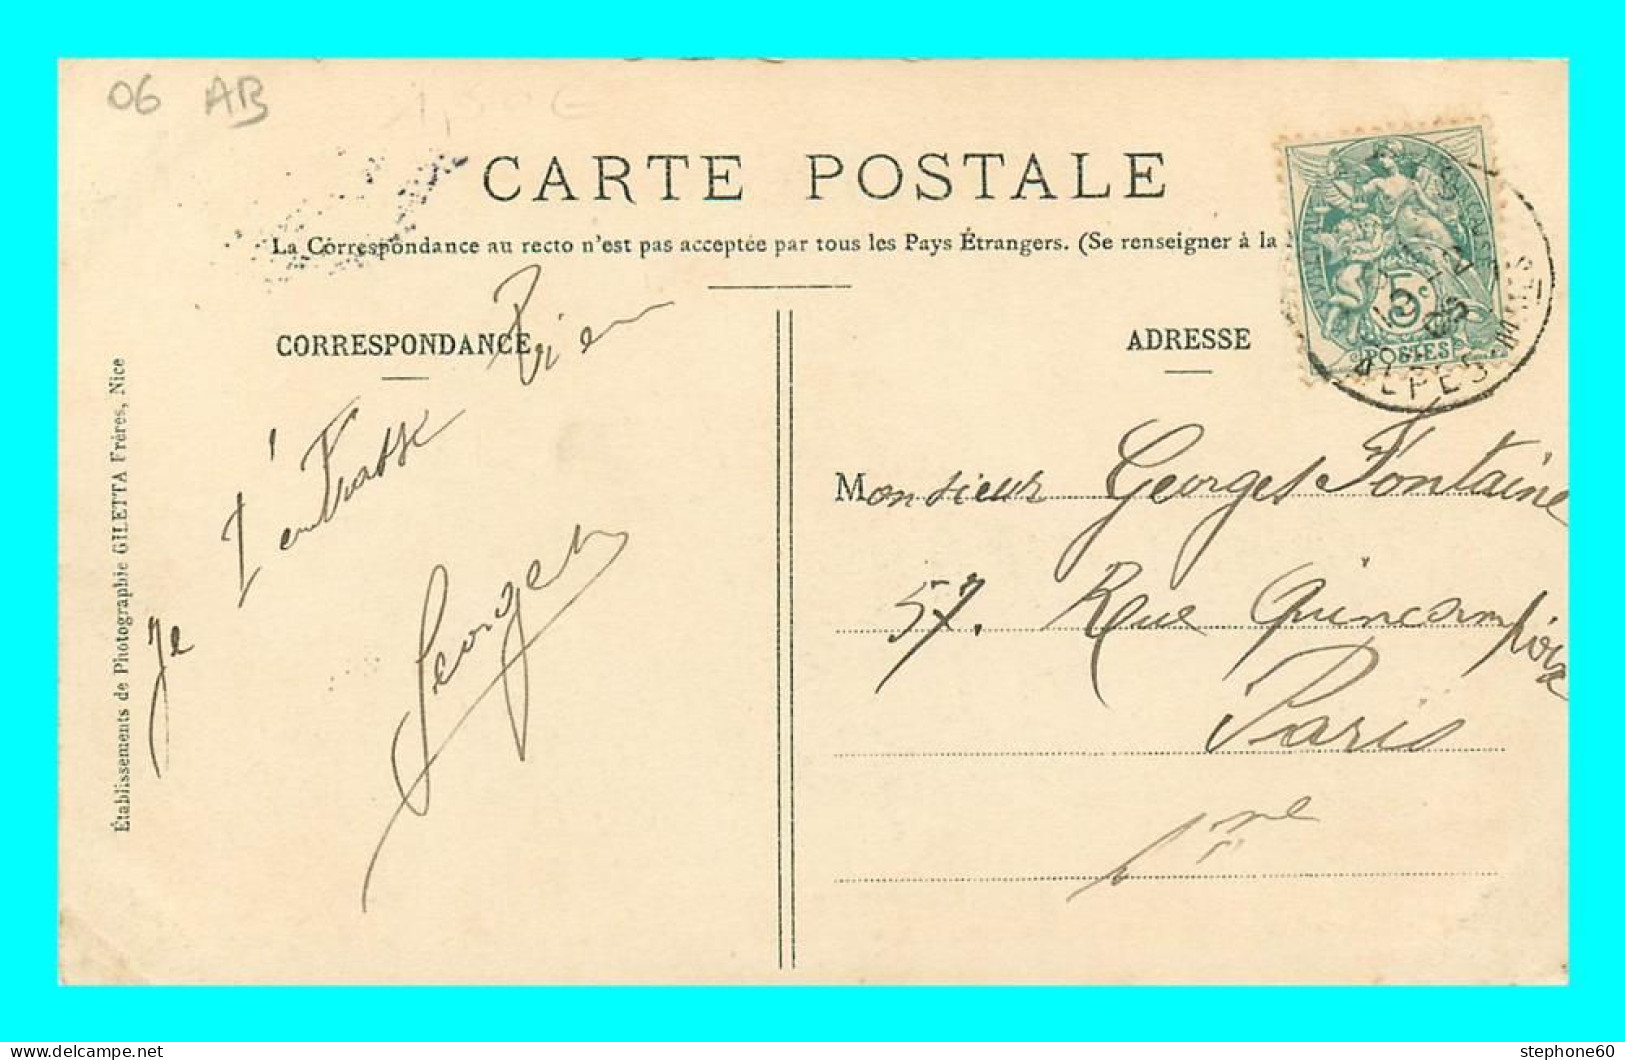 06 AB
CARTE POSTALE
La Correspondance au recto n'est pas acceptée par tous les Pays Étrangers. (Se renseigner à la
CORRESPONDANCE
ADRESSE
5c
POSTES
ALPES MMES
Établissements de Photographie GILETTA Frères, Nice
Je t'embrasse bien
Georges
Monsieur Georges Fontaine
57. Rue Quincampoix
Paris
delcampe.net
stephone60